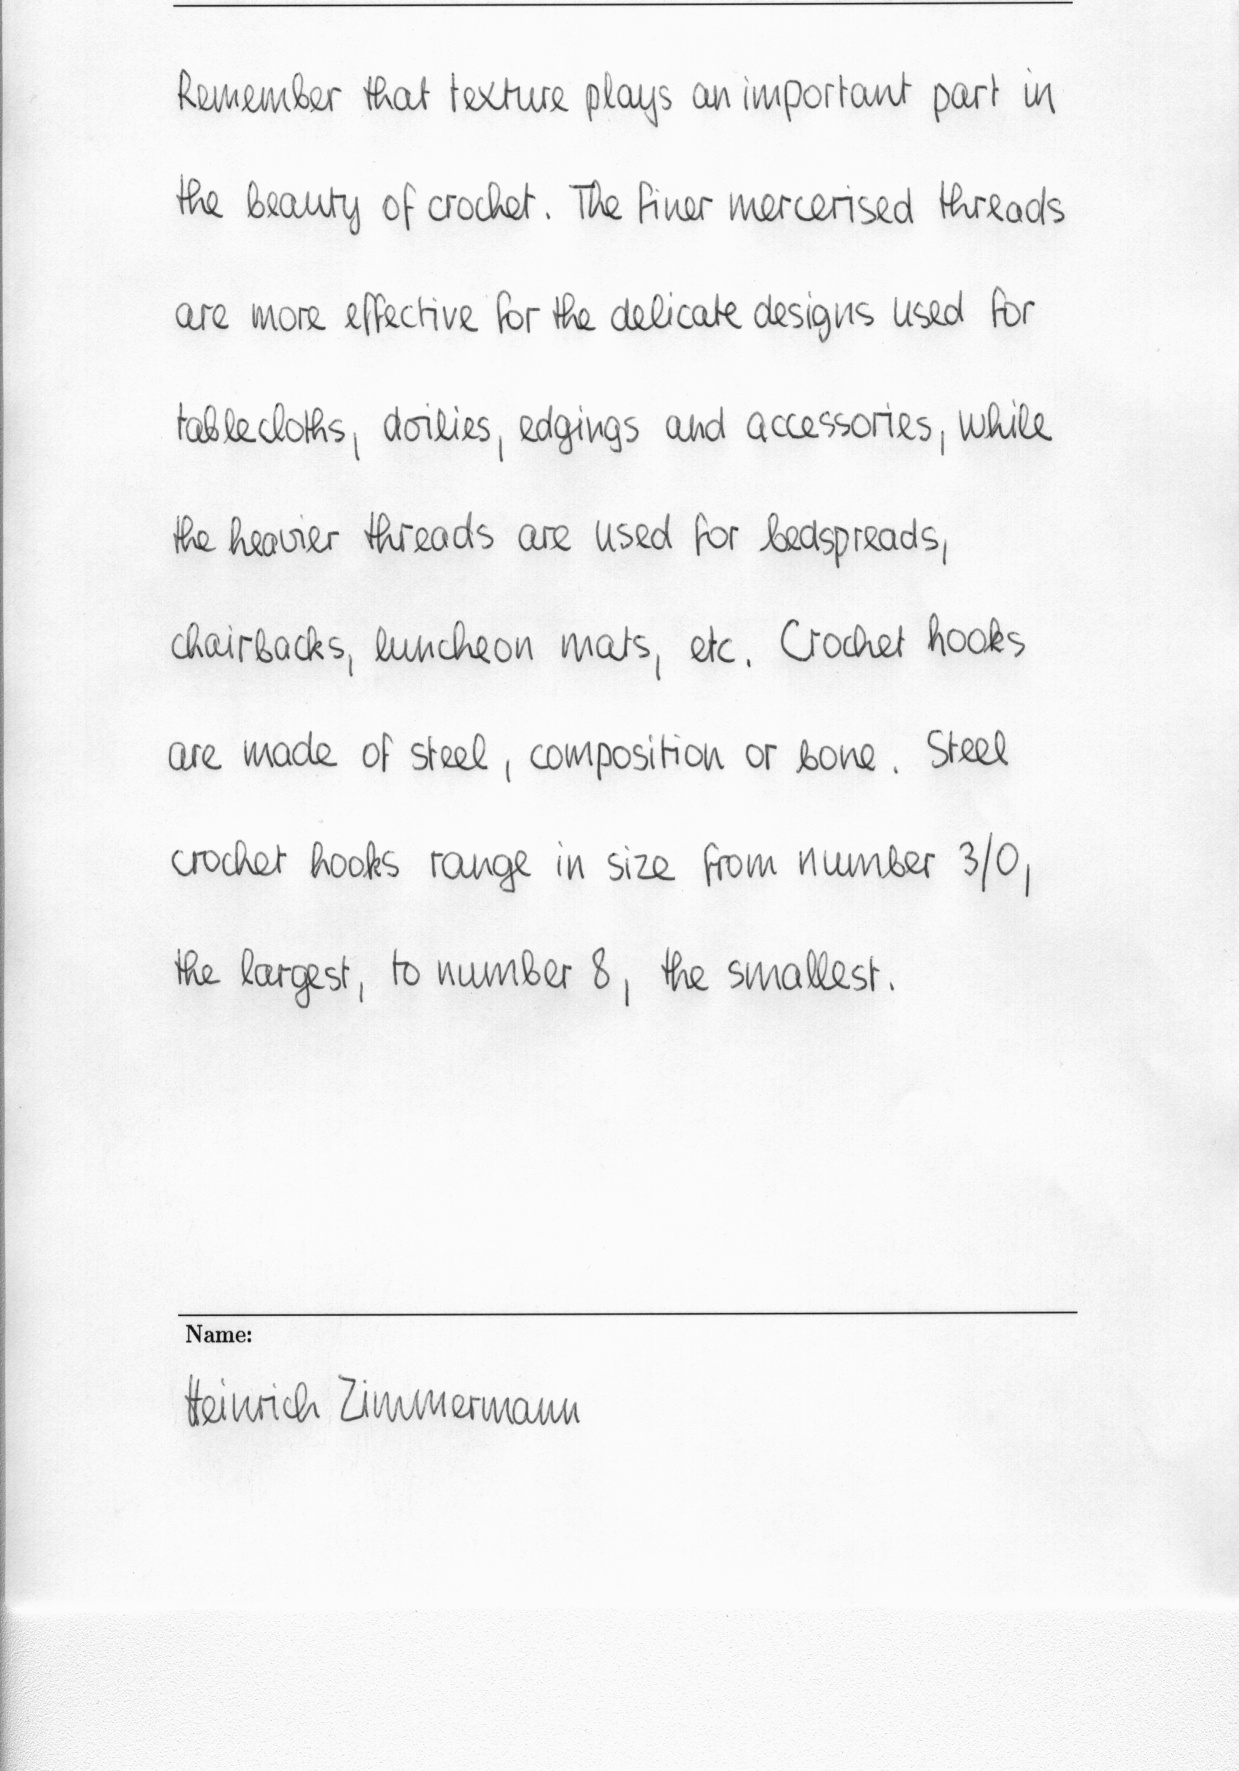 Remember that texture plays an important part in
the beauty of crochet. The finer mercerised threads
are more effective for the delicate designs used for
tablecloths, doilies, edgings and accessories, while
the heavier threads are used for bedspreads,
chairbacks, luncheon mats, etc. Crochet hooks
are made of steel, composition or bone. Steel
crochet hooks range in size from number 3/0,
the largest, to number 8, the smallest.
Name:
Heinrich Zimmermann